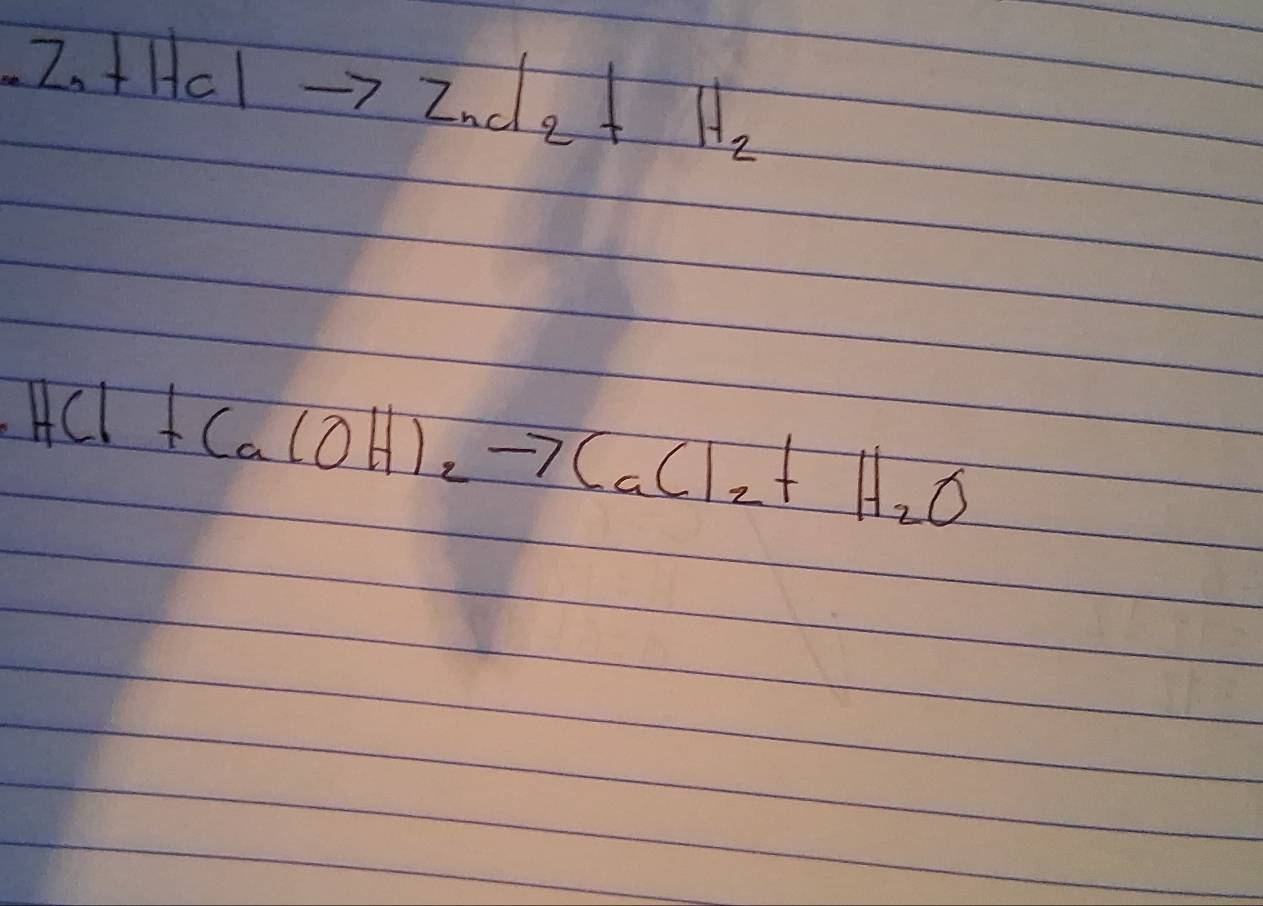 Zn + Hcl → Zncl₂ + H₂
HCl + Ca(OH)₂ → CaCl₂ + H₂O